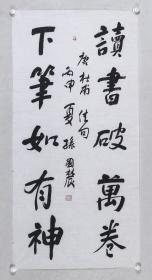 讀書破萬卷
下筆如有神
杜甫佳句
丙申夏孫國麓